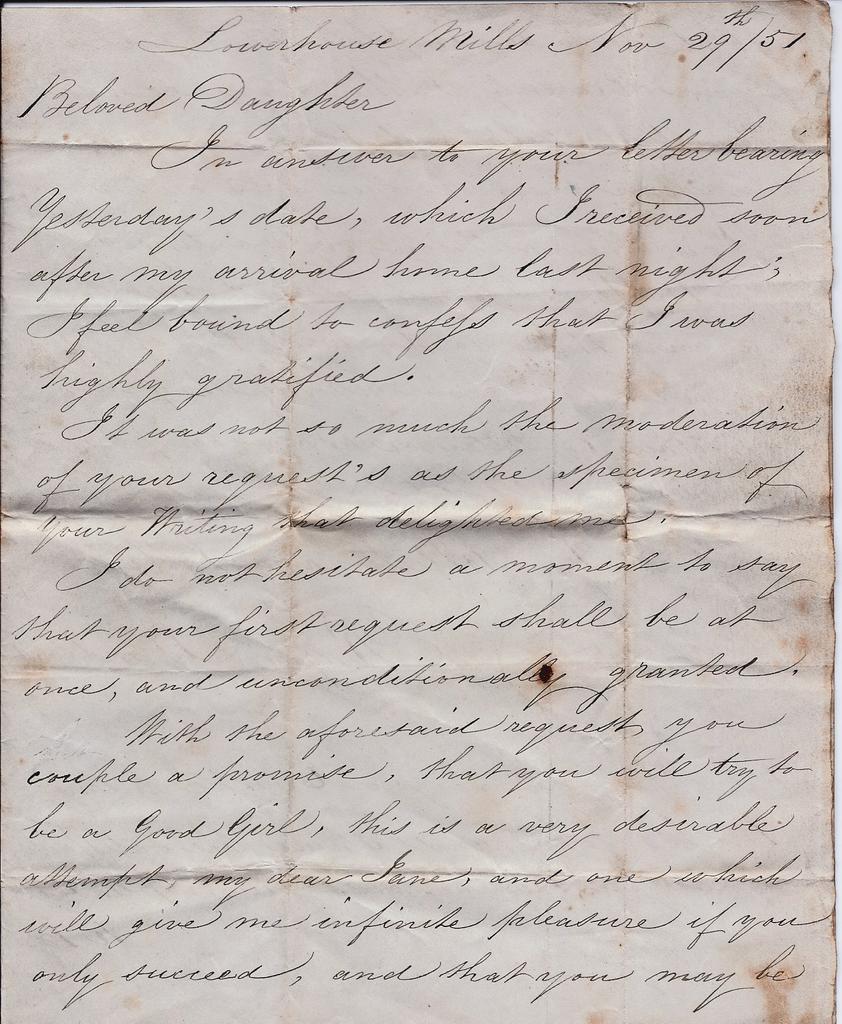 Lowerhouse Mills Nov 29th/51
Beloved Daughter
In answer to your letter bearing
Yesterday's date, which I received soon
after my arrival home last night;
I feel bound to confess that I was
highly gratified.
It was not so much the moderation
of your request's as the specimen of
your Writing that delighted me.
I do not hesitate a moment to say
that your first request shall be at
once, and unconditionally granted.
With the aforesaid request, you
couple a promise, that you will try to
be a Good Girl, this is a very desirable
attempt, my dear Jane, and one which
will give me infinite pleasure if you
only succeed, and that you may be